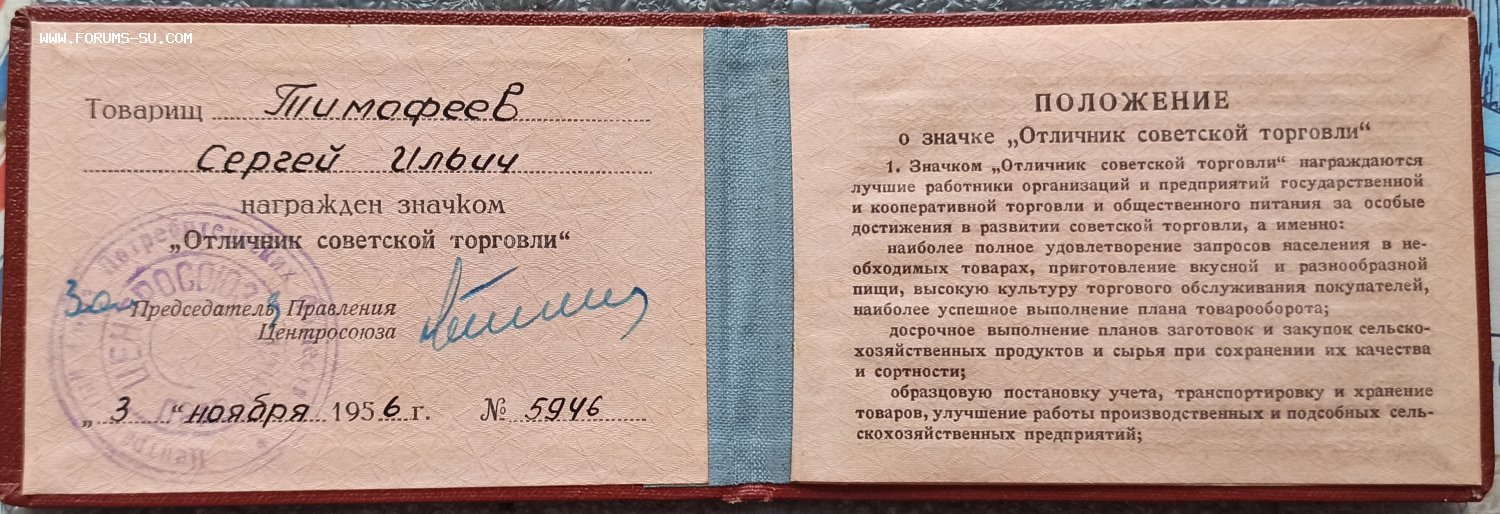 WWW.FORUMS-SU.COM
Товарищ Тимофеев
Сергей Ильич
награжден значком
„Отличник советской торговли“
Зам Председателя Правления
Центросоюза
„ 3 “ ноября 1956 г. № 5946
ПОЛОЖЕНИЕ
о значке „Отличник советской торговли“
1. Значком „Отличник советской торговли“ награждаются
лучшие работники организаций и предприятий государственной
и кооперативной торговли и общественного питания за особые
достижения в развитии советской торговли, а именно:
наиболее полное удовлетворение запросов населения в не-
обходимых товарах, приготовление вкусной и разнообразной
пищи, высокую культуру торгового обслуживания покупателей,
наиболее успешное выполнение плана товарооборота;
досрочное выполнение планов заготовок и закупок сельско-
хозяйственных продуктов и сырья при сохранении их качества
и сортности;
образцовую постановку учета, транспортировку и хранение
товаров, улучшение работы производственных и подсобных сель-
скохозяйственных предприятий;